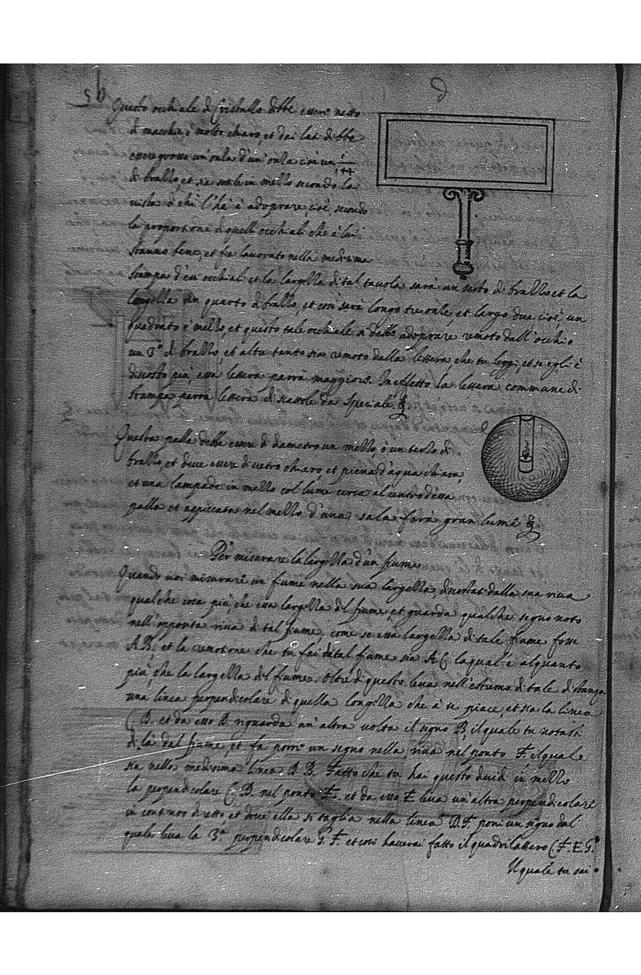 Questo occhiale di Cristallo debbe essere netto
di macchie, e molto chiaro, et dai lati debbe
essere grosso un'oncia d'un'oncia cioè un 1/144
di braccio, et sia sottile in mezzo secondo la
vista di chi l'hà à adoprare, cioè, secondo
la proportione di quelli occhiali che à lui
stanno bene, et fia lavorato nella medesima
stampa d'essi occhiali, et la largezza di tal tavola sarà un sesto di braccio et la
longezza un quarto di braccio, et così sarà longo tre oncie, et largo dua, cioè, un
quadrato e mezzo, et questo tale occhiale si debbe adoprare remoto dall'occhio
un 3º di braccio, et altre tanto sia remoto dalla lettera che tu leggi, et se gli è
discosto più, essa lettera parrà maggiore. In effetto la lettera commune di
stampa parrà lettera di scattole da speciale.
Questa palla debbe essere di diametro un mezzo, ò un terzo di
braccio, et deve essere di vetro chiaro, et piena d'aqua chiara,
et una lampade in mezzo col lume circa al centro d'essa
palla et appiccata nel mezzo d'una sala farà gran lume
Per misurare la largezza d'un fiume
Quando voi misurare un fiume nella sua largezza discostati dalla sua riva
qualche cosa più che essa largezza del fiume, et guarda qualche segno noto
nell'opposta riva di tal fiume, come se essa largezza di tale fiume fosse
A.B. et la remotione che tu fai da tal fiume sia A C laqual è alquanto
più che la largezza del fiume. Oltre di questo leva nell'estremo di tale distanza
una linea perpendicolare di quella longezza che à te piace, et sia la linea
C. D. et da esso D. riguarda un'altra volta il segno B il quale tu notasti
di là dal fiume, et fa porre un segno nella riva nel ponto F. il qual
sia nella medesima linea D B. Fatto che tu hai questo dividi in mezzo
la perpendicolare C. D nel ponto E, et da esso E leva un'altra perpendicolare
in continuo diretto et dove ella si taglia nella linea D.F. poni un segno dal
quale leva la 3ª perpendicolare G. F. et così haverai fatto il quadrilattero C.F.E.G.
Il quale tu sai